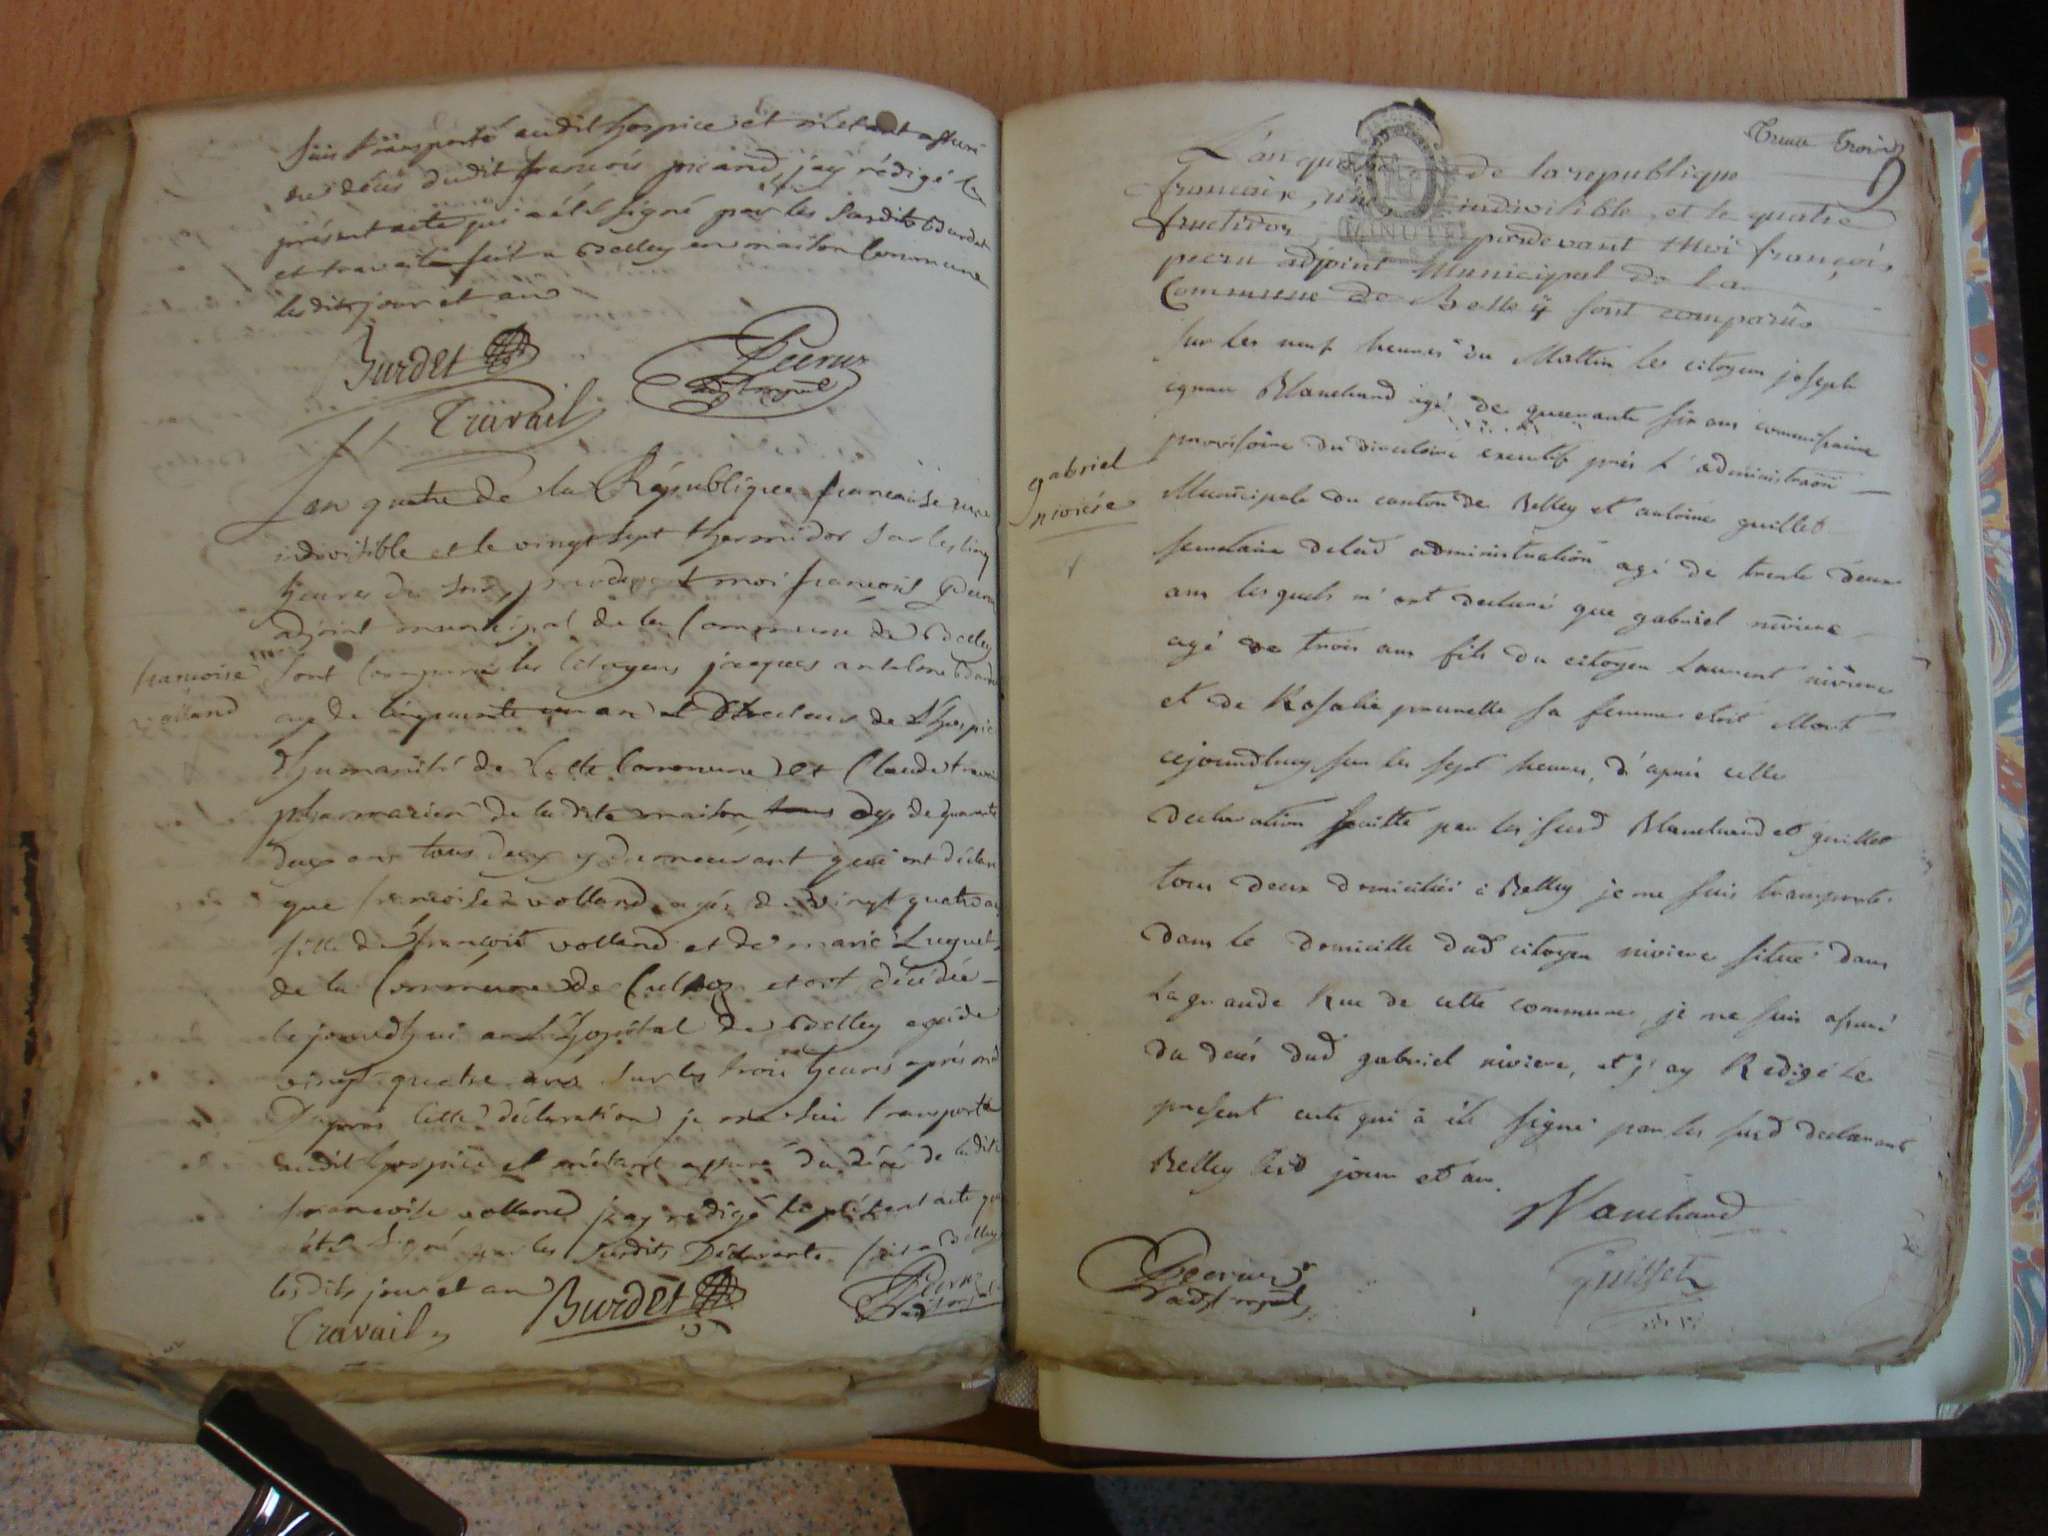 suis transporté audit hospice et m'étant assuré
du décès dudit francois picand, jay rédigé le
présent acte qui a été signé par les susdits Burdet
et travail fait a Belley en maison Commune
lesdits jour et an
Burdet
Peeruz
adj. mpal
Travail
L'an quatre de la République francaise une
indivisible et le vingt sept thermidor sur les cinq
heures du soir, pardevant moi francois Peeruz
adjoint municipal de la Commune de Belley
francoise
volland
sont comparu les Citoyens jacques antelme
agé de cinquante un an Directeur de L'hospice
d'humanité de Cette Commune et Claude travail
pharmacien de la dite maison tous agé de quarante
deux ans tous deux y demeurant qui ont déclaré
que francoise volland agée de vingt quatre ans
fille de francois volland et de marie Luquet
de la Commune de Culoz etoit décédée
cejourdhui a L'hopital de Belley agée de
vingt quatre ans sur les trois heures après midi
D'après Cette déclaration je me suis transporté
audit hospice et m'étant assuré du décès de ladite
francoise volland jay rédigé le présent acte qui
été signé par les susdits Déclarants fait a Belley
lesdits jour et an
Burdet
Peeruz
adj. mpal
Travail
Trente trois
L'an quatre de la republique
francaise, une, indivisible, et le quatre
fructidor, pardevant Moi françois
peeru adjoint Municipal de La
Commune de Belley sont comparus
MINUTE
sur les neuf heures du Mattin les citoyens joseph
ignace Blanchard agé de quarante six ans commissaire
provisoire du directoire executif près L'administraõn
gabriel
niviere
Municipale du canton de Belley et antoine guillet
secretaire de lad administration agé de trente deux
ans lesquels m'ont declaré que gabriel niviere
agé de trois ans fils du citoyen Laurent niviere
et de Rosalie prunelle sa femme etoit Mort
cejourdhuy sur les sept heures, d'après cette
declaration faitte par les susd Blanchard et guillet
tous deux domiciliés à Belley je me suis transporté
dans le domicille dud citoyen niviere situé dans
La grande Rue de cette commune, je me suis assuré
du decés dud gabriel niviere, et j'ay Redigé Le
present acte qui à été signé par les susd declarants
Belley lesd jour et an.
Blanchard
Peeruz
adj. mpal
Guillet